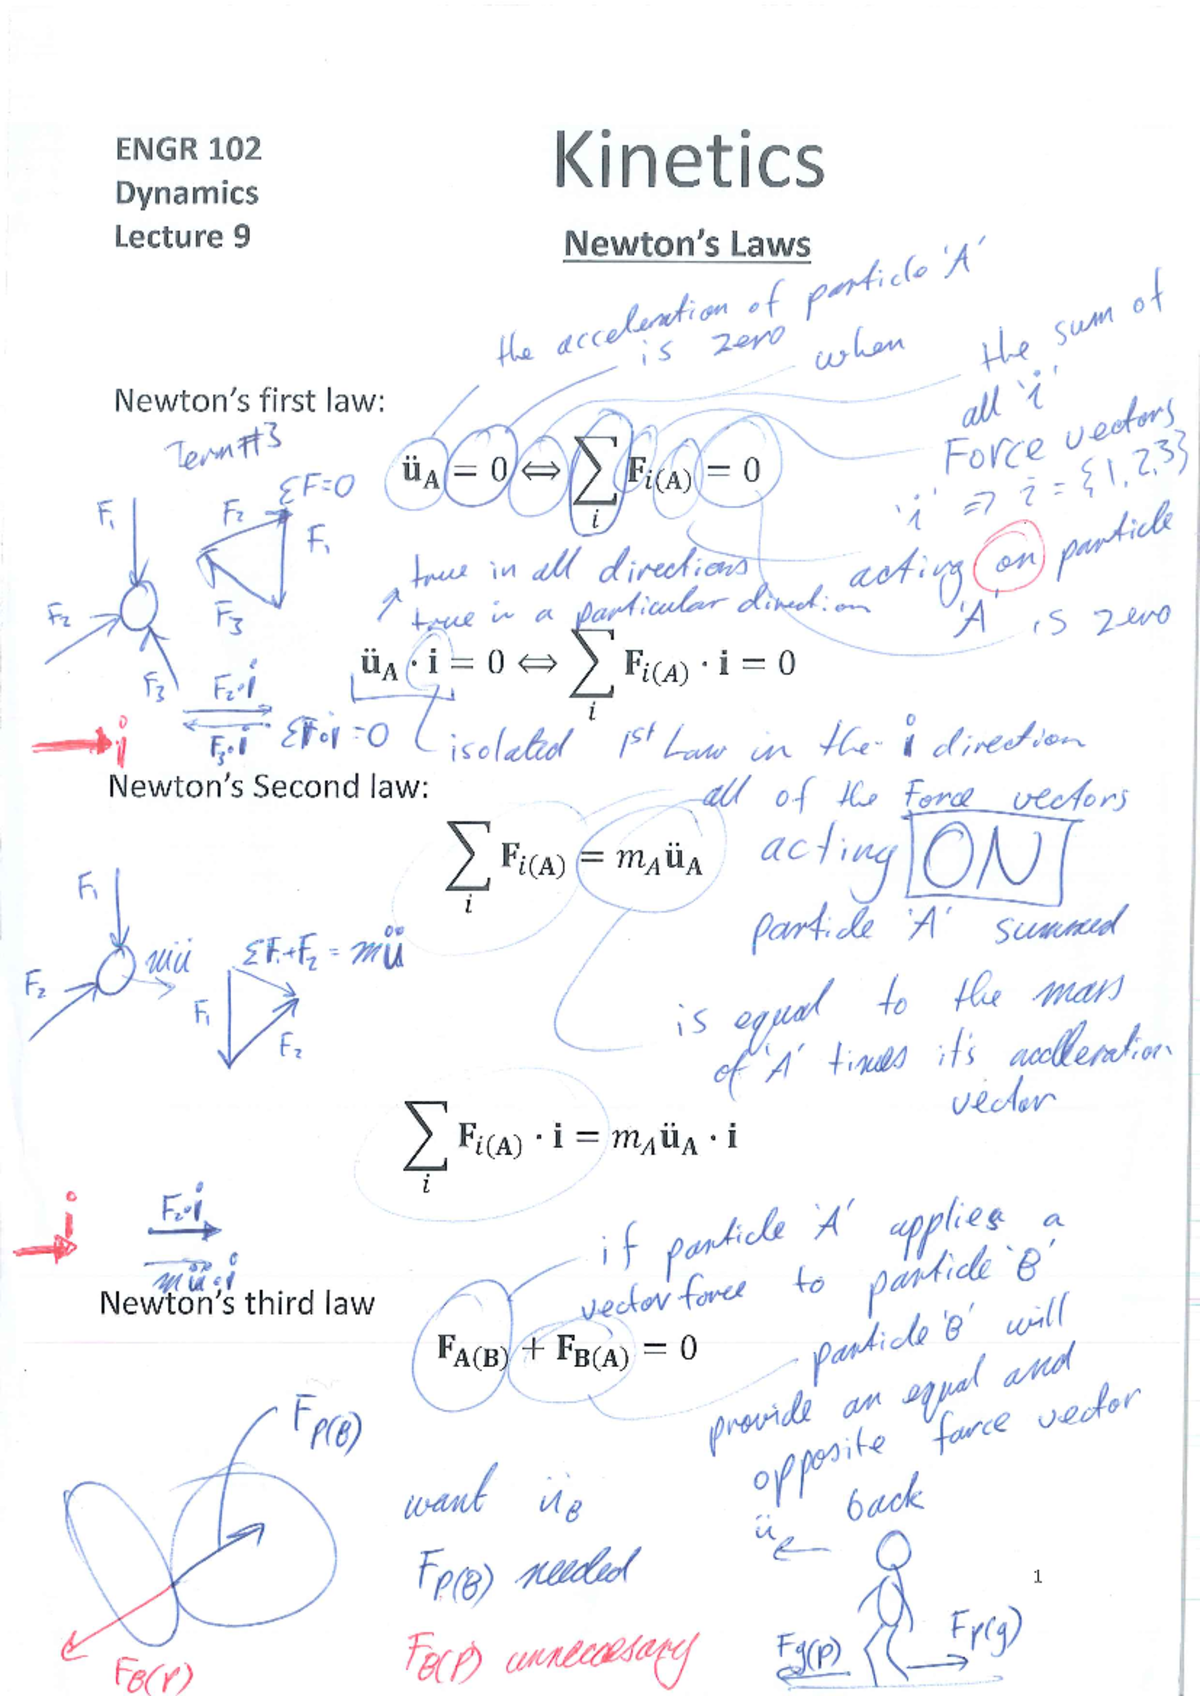 ENGR 102
Dynamics
Lecture 9
Kinetics
Newton's Laws
the acceleration of particle 'A'
is zero
when
the sum of
all 'i'
Force vectors
'i' => i = {1,2,3}
acting on particle
'A' is zero
Newton's first law:
Term #3
ü_A = 0 ⇔ ∑_i F_i(A) = 0
ΣF=0
F₁
F₂
F₁
F₂
F₃
F₃
true in all directions
true in a particular direction
ü_A · i = 0 ⇔ ∑_i F_i(A) · i = 0
F₂·i
F₃·i
ΣF·i=0
i
isolated 1st Law in the i direction
Newton's Second law:
all of the Force vectors
acting ON
particle 'A' summed
∑_i F_i(A) = m_A ü_A
F₁
F₂
mü
ΣF₁+F₂ = mü
F₁
F₂
is equal to the mass
of 'A' times it's accelleration
vector
∑_i F_i(A) · i = m_A ü_A · i
i
F₂·i
mü·i
Newton's third law
if particle 'A' applies a
vector force to particle 'B'
F_A(B) + F_B(A) = 0
particle 'B' will
provide an equal and
opposite force vector
back
F_P(B)
F_B(P)
want ü_B
F_P(B) needed
F_B(P) unneccesary
ü
F_g(p)
F_p(g)
1